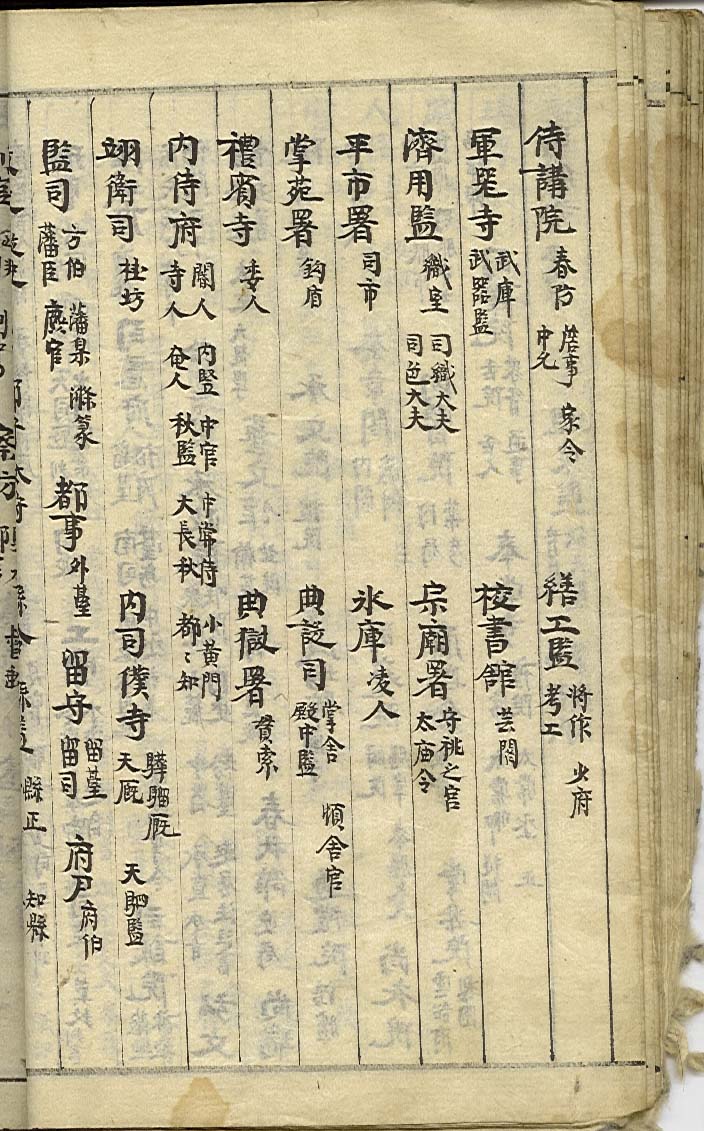 侍講院 春坊 詹事 中允 家令 繕工監 將作 考工 少府
軍器寺 武庫 武器監 校書館 芸閣
濟用監 織室 司織大夫 司色大夫 宗廟署 守祧之官 太庙令
平市署 司市 氷庫 凌人
掌苑署 鈎盾 典設司 掌舍 殿中監 順舍官
禮賓寺 委人 典獄署 貫索
内侍府 閽人 寺人 内竪 奄人 中官 秋監 中常侍 大長秋 小黃門 都〻知
翊衛司 桂坊 内司僕寺 驊騮厩 天厩 天駟監
監司 方伯 藩臣 藩臬 廉官 滌篆 都事 外䑓 留守 留䑓 留司 府尹 府伯
縣正 知縣